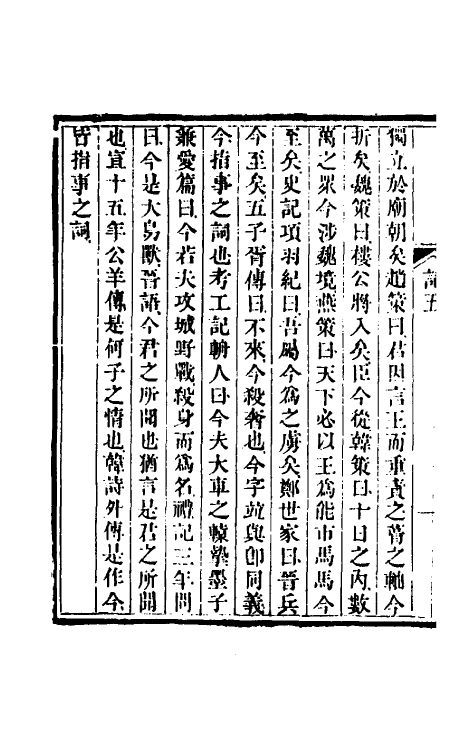 獨立於廟朝矣趙策曰君因言王而重責之䓇之軸今
折矣魏策曰樓公將入矣臣今從韓策曰十日之內數
萬之眾今涉魏境燕策曰天下必以王爲能市馬馬今
至矣史記項羽紀曰吾屬今爲之虜矣鄭世家曰晉兵
今至矣五子胥傳曰不來今殺奢也今字竝與卽同義
今指事之詞也考工記輈人曰今夫大車之轅摯墨子
兼愛篇曰今若夫攻城野戰殺身而爲名禮記三年問
曰今是大鳥獸晉語今君之所聞也猶言是君之所聞
也宣十五年公羊傳是何子之情也韓詩外傳是作今
皆指事之詞
記五